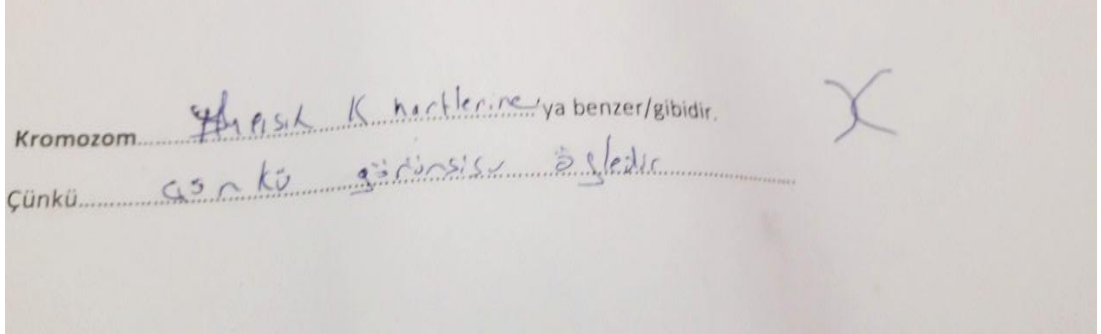 Kromozom.......Yapışık K harflerine'ya benzer/gibidir.
Çünkü.......çünkü görünüsü öyledir.......